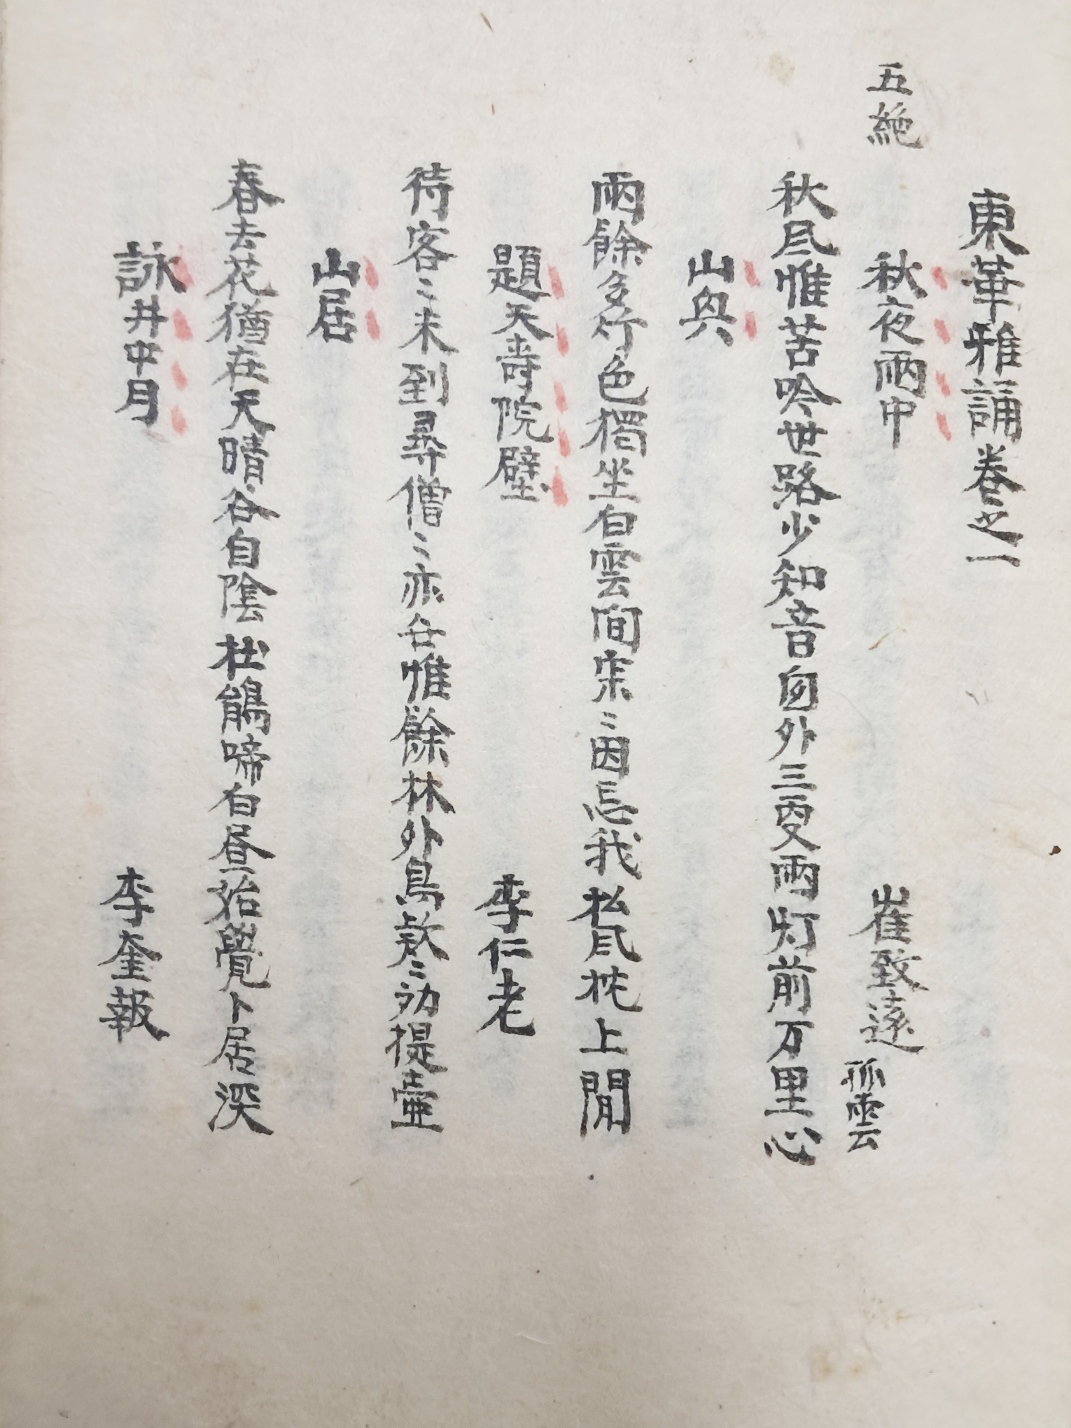 東華雅誦卷之一
五絶
秋夜雨中 崔致遠 孤雲
秋風惟苦吟世路少知音窓外三更雨灯前万里心
山與
雨餘多竹色獨坐白雲間寂〻因忘我松風枕上聞
題天壽院壁 李仁老
待客〻未到尋僧〻亦無惟餘林外鳥款〻劝提壷
山居
春去花猶在天晴谷自陰杜鵑啼白昼始覺卜居深
詠井中月 李奎報